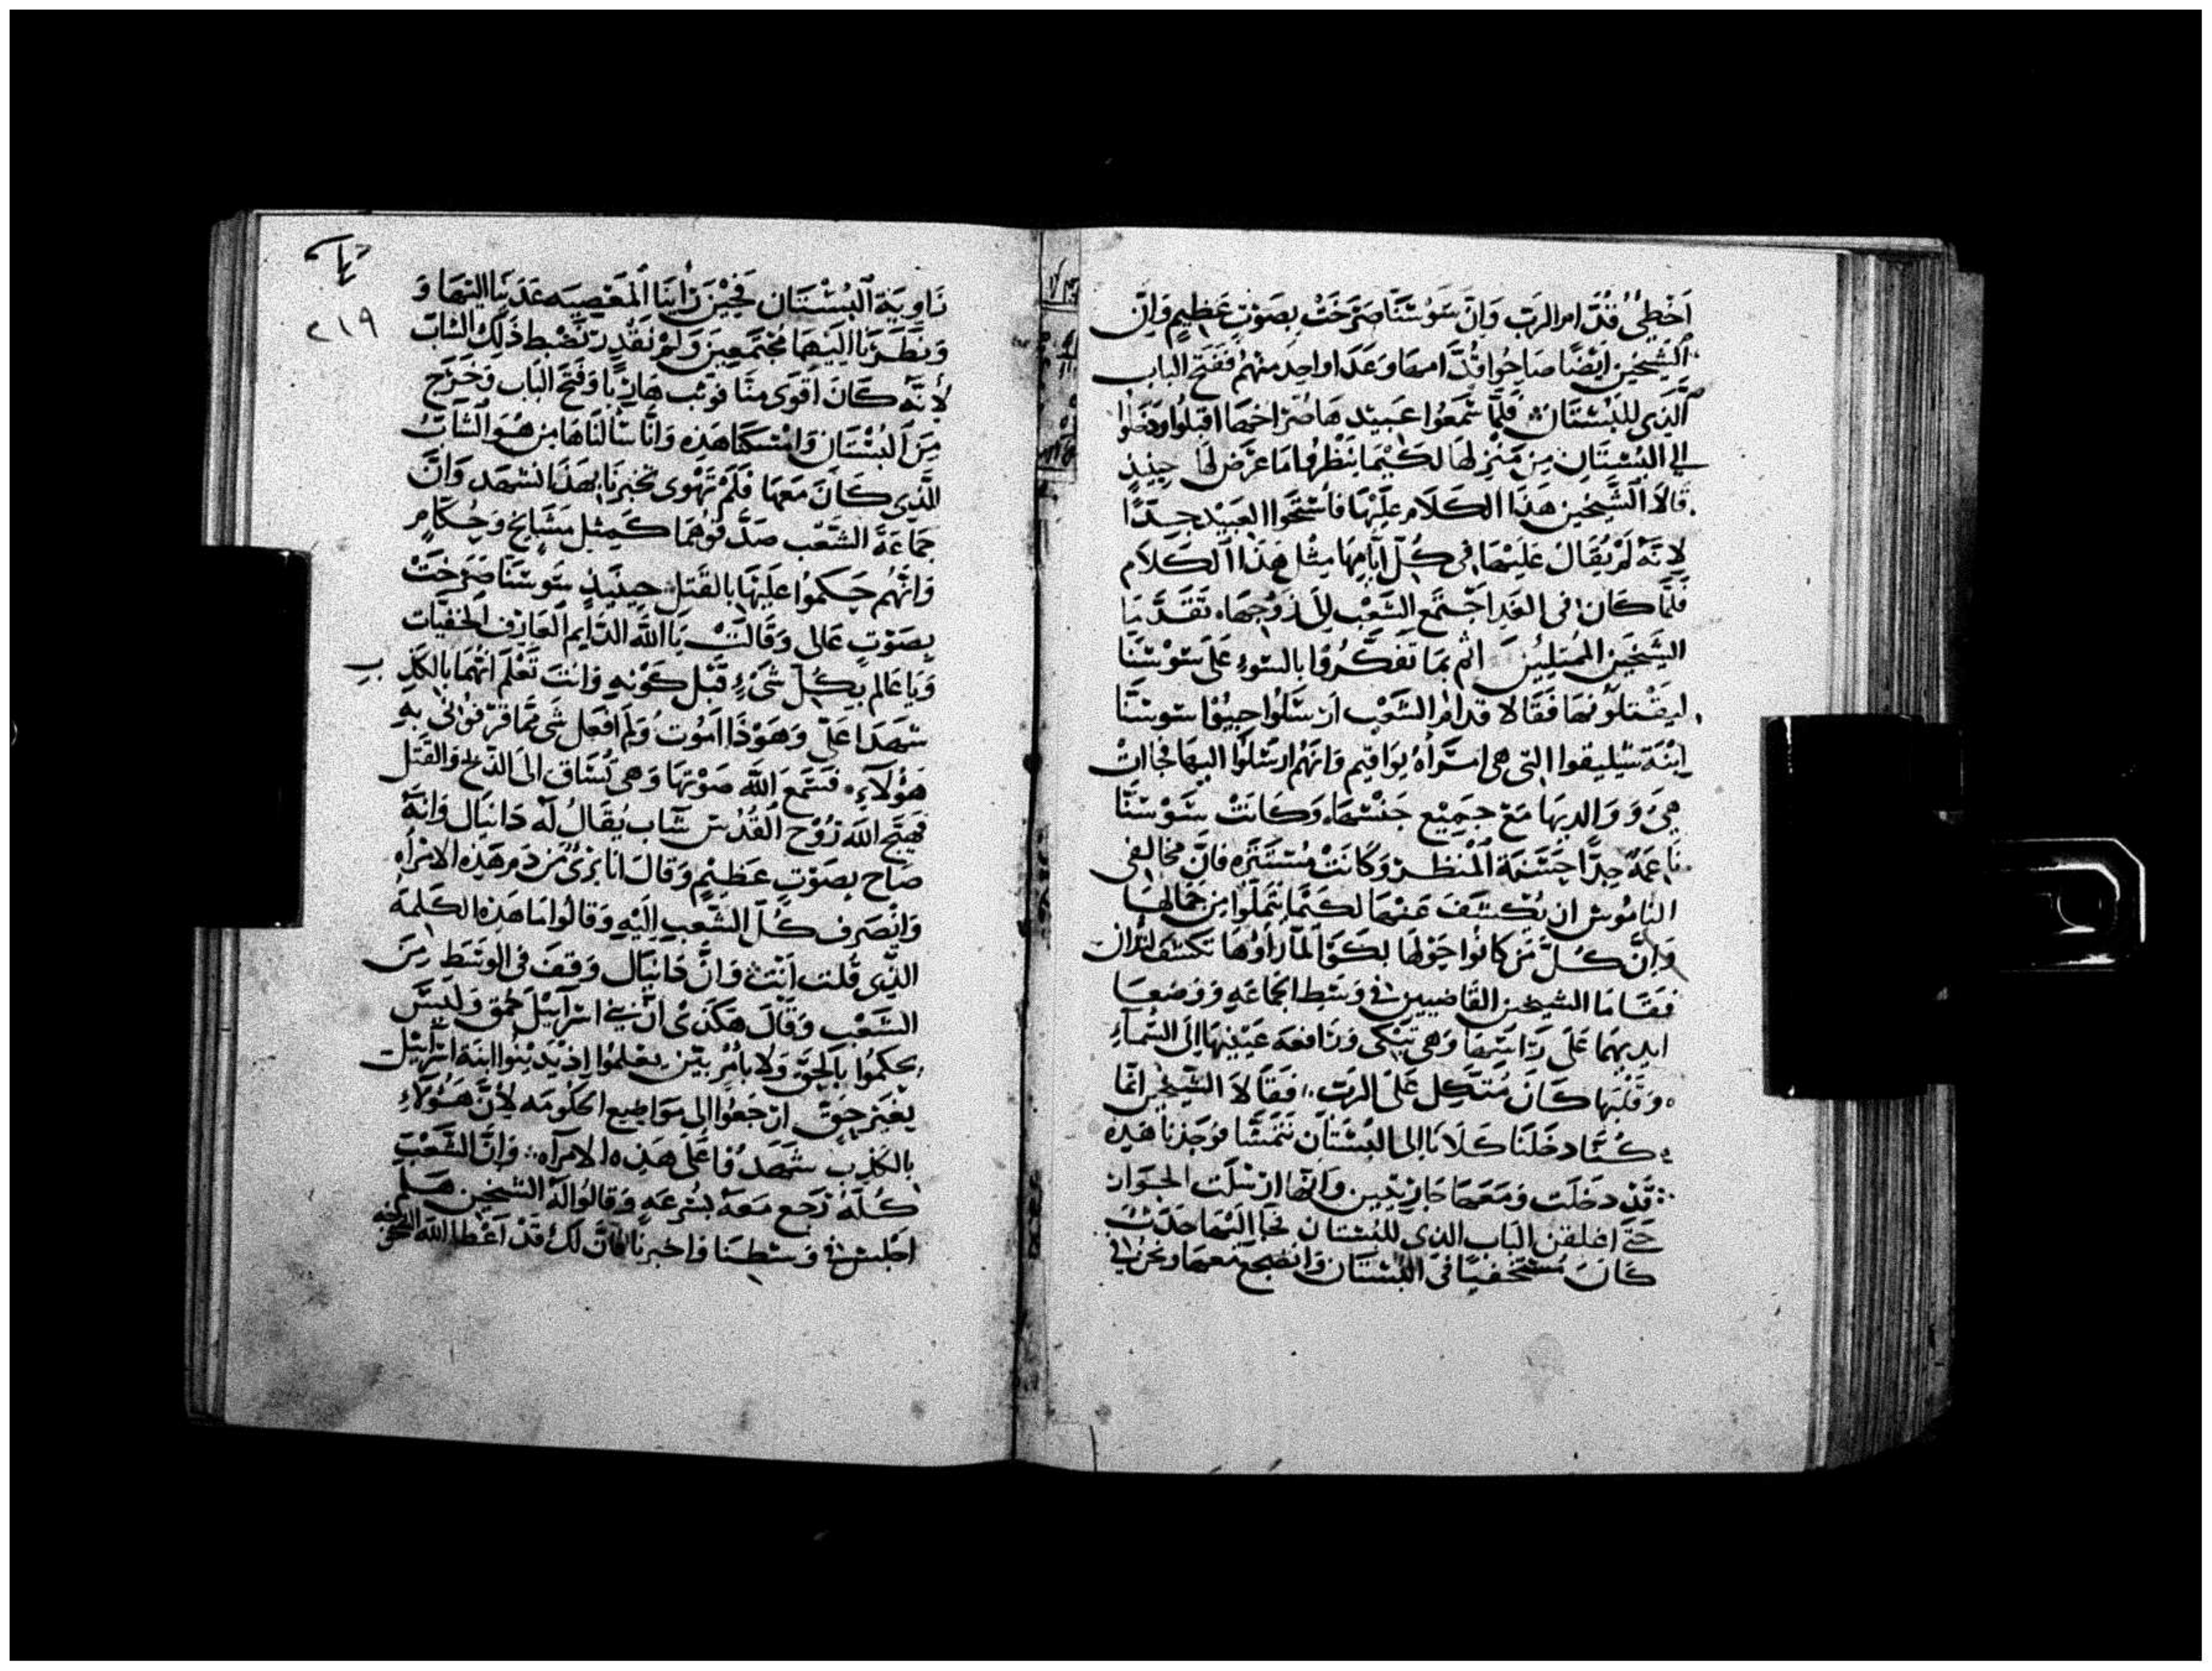 اَخْطِئُ قُدَّام الرَبّ وَاِنَّ سَوْسَنَّا صَرَخَتْ بِصَوْتٍ عَظِيمٍ وَاِنَّ
الشَيْخَيْن اَيْضًا صَاحُوا قُدَّامهَا وَعَدَا وَاحِد مِنْهُم فَفَتَح الباب
الَّذِي للبُسْتَان فَلَمَّا سَمَعُوا عَبِيد هَا صُرَاخهَا اقْبَلُوا وَدَخَلوُا
الي البُسْتَان مِن مَنْزِلهَا لكَيْمَا يَنْظُرُوا مَا عَرَض لهَا حِينَيذٍ
قَالاَ الشَّيْخَين هَذَا الكَلاَم عَلَيْهَا فَاسْتَحَوا العَبِيْد جِدًّا
لاِنَّهُ لَمْ يُقَالْ عَلَيْهَا فِي كُلّ اَيَّامِهَا مِثْل هَذَا الكَلاَم
فَلَمَّا كَان فِي الغَدِ اجْتَمَع الشَّعْب اِلَى زَوْجِهَا، تَقَدَّمَا
الشَيْخَين المُمْتَلِيَين اثْم بمَا تَفَكَّرُوا بالسُوءِ عَلَى سَوْسَنَّا
ليَقْتلُونهَا فَقَالا قدام الشَّعْب ارْسَلُوا جِيبُوا سوسَنَّا
اِبْنَة شِلِيقوا التي هي امرَأة يوَاقِيم وَانهُم ارْسَلُوا اليهَا فجَاات
هِيَ وَوَالديهَا مَعَ جَمِيْع جَنْسهَا، وَكَانَتْ سَوْسَنَّا
نَاعِمَة جِدًّا حَسَنة المْنظر وَكَانَتْ مُسْتَتَرة فاِنَّ مُخَالفي
النَامُوس ان يُكْشَفَ عَنهَا لكَيْمَا يَتَمَلَّوا مِن جَمَالهَا
وَاِنَّ كُلّ مَن كَانُوا حَوْلهَا بَكَوْا لمَّا رَأوهَا تكشَف
فَقَامَا الشَيخَين القَاضِيين فِي وَسَط الجَمَاعَةِ وَوَضعَا
ايديهمَا عَلَى رَاسهَا وَهي تَبْكي وَرَافعَة عَيْنَيهَا الى السَمآءِ
وَقَلْبهَا كَان مُتَّكِل عَلَى الرَبّ، فَقَالاَ الشَيْخَين انَّمَا
كُنَّا دخَلْنَا كَلاَنَا الى البُسْتَان نَتَمَشَّا فوَجَدْنَا هَذِهِ
قَدْ دخَلَت وَمَعَهَا جَارِيَتَين وَانهَا ارْسَلَت الجوَار
حَتَي اغلقن البَاب الذي للبُسْتَان فجَا اليهَا حَدَث
كَانَ مُسْتَخْفيًا فِي البُسْتَان وَانْضَجع مَعهَا وَنحن فِي
تا
٢١٩
زَاوِيَة البُسْتَان فَحِيْن رَايْنَا المْعَصِيَه عَدَيْنَا اليْهَا وَ
وَنَظَرْنَا اليْهِمَا مُجْتَمعِين وَلَمْ نقْدِر نَضْبط ذَلِك الشاب
لأَنَّهُ كَانَ اَقْوَى مِنَّا فَوَثب هَارِبًا وَفَتَح البَاب وَخَرَج
مِنَ البُسْتَان وَامْسَكنَا هَذِه وَانَّا سَألنَاهَا مِن هُوَ الشاَبُّ
الَّذِي كَانَ مَعهَا فَلَمْ تَهْوى تخبرنَا، بهَذَا نشهَد وَانَّ
جَمَاعَة الشَعْب صَدَّقوُهُمَا كَمِثل مَشَايخ وَحُكَّام
وَانّهُم حَكمُوا عَلَيهَا بالقَتل حِينَيذٍ سَوسَنَّا صَرَخَتْ
بِصَوْتٍ عَالى وَقَالَتْ يَا اللّه الدَايم العَارِف الخَفيَّات
وَيَا عَالم بِكُلّ شَيْءٍ قَبْل كَوْنهِ وَانتَ تَعْلَم انهُمَا بالكَذِب
شَهدَا عَلَيَّ وَهَوْذَا امُوت وَلَم افْعَل شَي ممَّا قرَفوُنِي بهِ
هَؤُلآءِ، فسَمعَ اللّه صَوْتهَا وَهي تُسَاق الى الذبح وَالقَتل
فهَيَّج اللّه رُوْح القُدُس شَاب يُقَالُ لَه دَانيَال وَانهُ
صَاح بصَوْتٍ عَظِيْمٍ وَقَال انَا بَرِيٌ مِن دَم هَذه الامْرأه
وَانْصَرف كُلّ الشَعب الَيْهِ وَقَالُوا مَا هَذِه الكَلِمَة
الَّذِي قُلت انْتَ، وَانَّ دَانيَال وَقفَ فِي الوَسَط مِنَ
الشَعْب وَقَال هَكَذَى انَّ فِي اسْرَآيل حُمق وَلَيْسَ
يحكمُوا بالحَقّ وَلا بامْرٍ بيّن يعْلمُوا اذ يَدينُوا ابنَة اسْرَاييل
بغَيْر حَقّ ارْجعُوا الى مَوَاضِع الحكُومه لاِنَّ هَؤُلآءِ
بالكَذِب شهدُوا عَلَى هَذِه الامرَآه، وَانَّ الشَّعْب
كُلّهُ رَجع مَعهُ بسُرعَهٍ وَقَالوُا لَهُ الشَيخَين هَلم
اجْلس فِي وسْطِنَا وَاخبرنَا فَان لَكَ قَدْ اعْطا اللّه